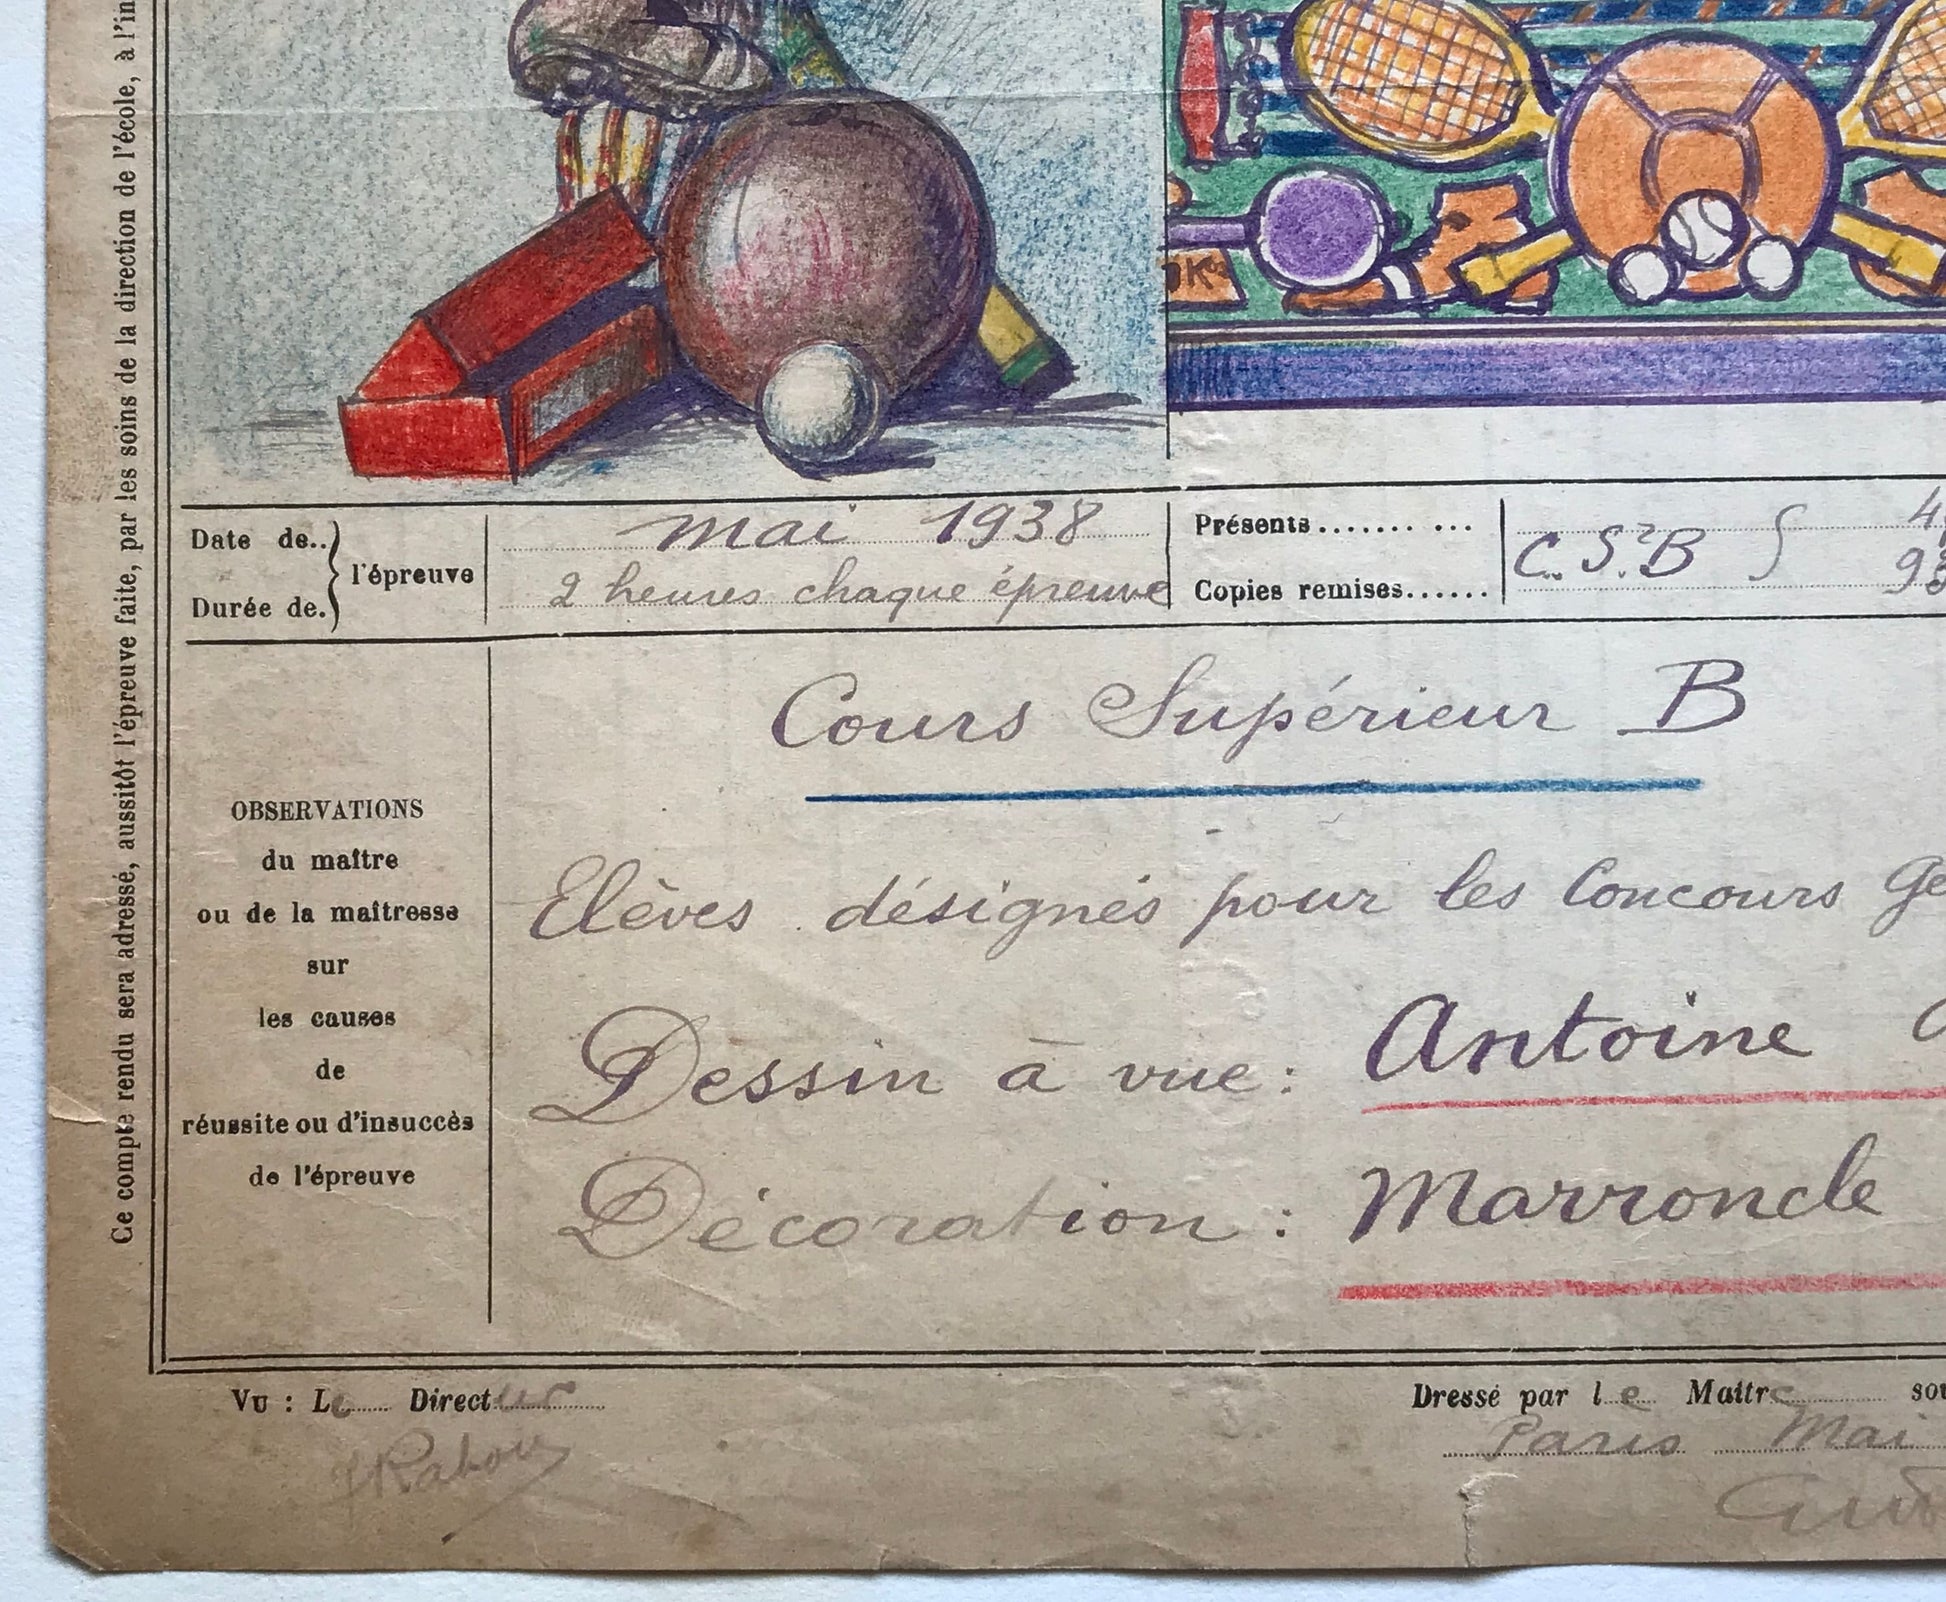 Ce compte rendu sera adressé, aussitôt l'épreuve faite, par les soins de la direction de l'école, à l'in
Date de..
Durée de.
l'épreuve
mai 1938
2 heures chaque épreuve
Présents..........
Copies remises......
C. S.² B
Cours Supérieur B
OBSERVATIONS
du maître
ou de la maîtresse
sur
les causes
de
réussite ou d'insuccès
de l'épreuve
Elèves désignés pour les Concours Gé
Dessin à vue: Antoine
Décoration : Marroncle
Vu : Le Directeur
Dressé par le Maître sou
Paris Mai